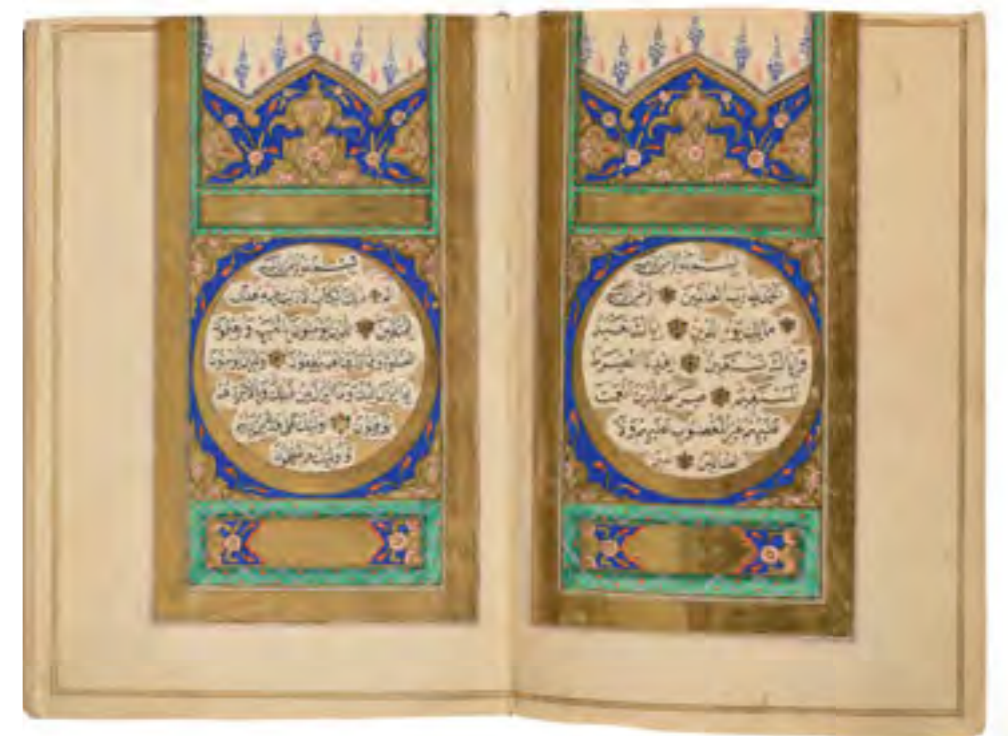 بسم الله الرحمن الرحيم
الحمد لله رب العالمين الرحمن الرحيم
مالك يوم الدين اياك نعبد
واياك نستعين اهدنا الصراط
المستقيم صراط الذين انعمت
عليهم غير المغضوب عليهم ولا
الضالين امين
بسم الله الرحمن الرحيم
الم ذلك الكتاب لا ريب فيه هدى
للمتقين الذين يؤمنون بالغيب ويقيمون
الصلوة ومما رزقناهم ينفقون والذين يؤمنون
بما انزل اليك وما انزل من قبلك وبالاخرة هم
يوقنون اولئك على هدى من ربهم
واولئك هم المفلحون